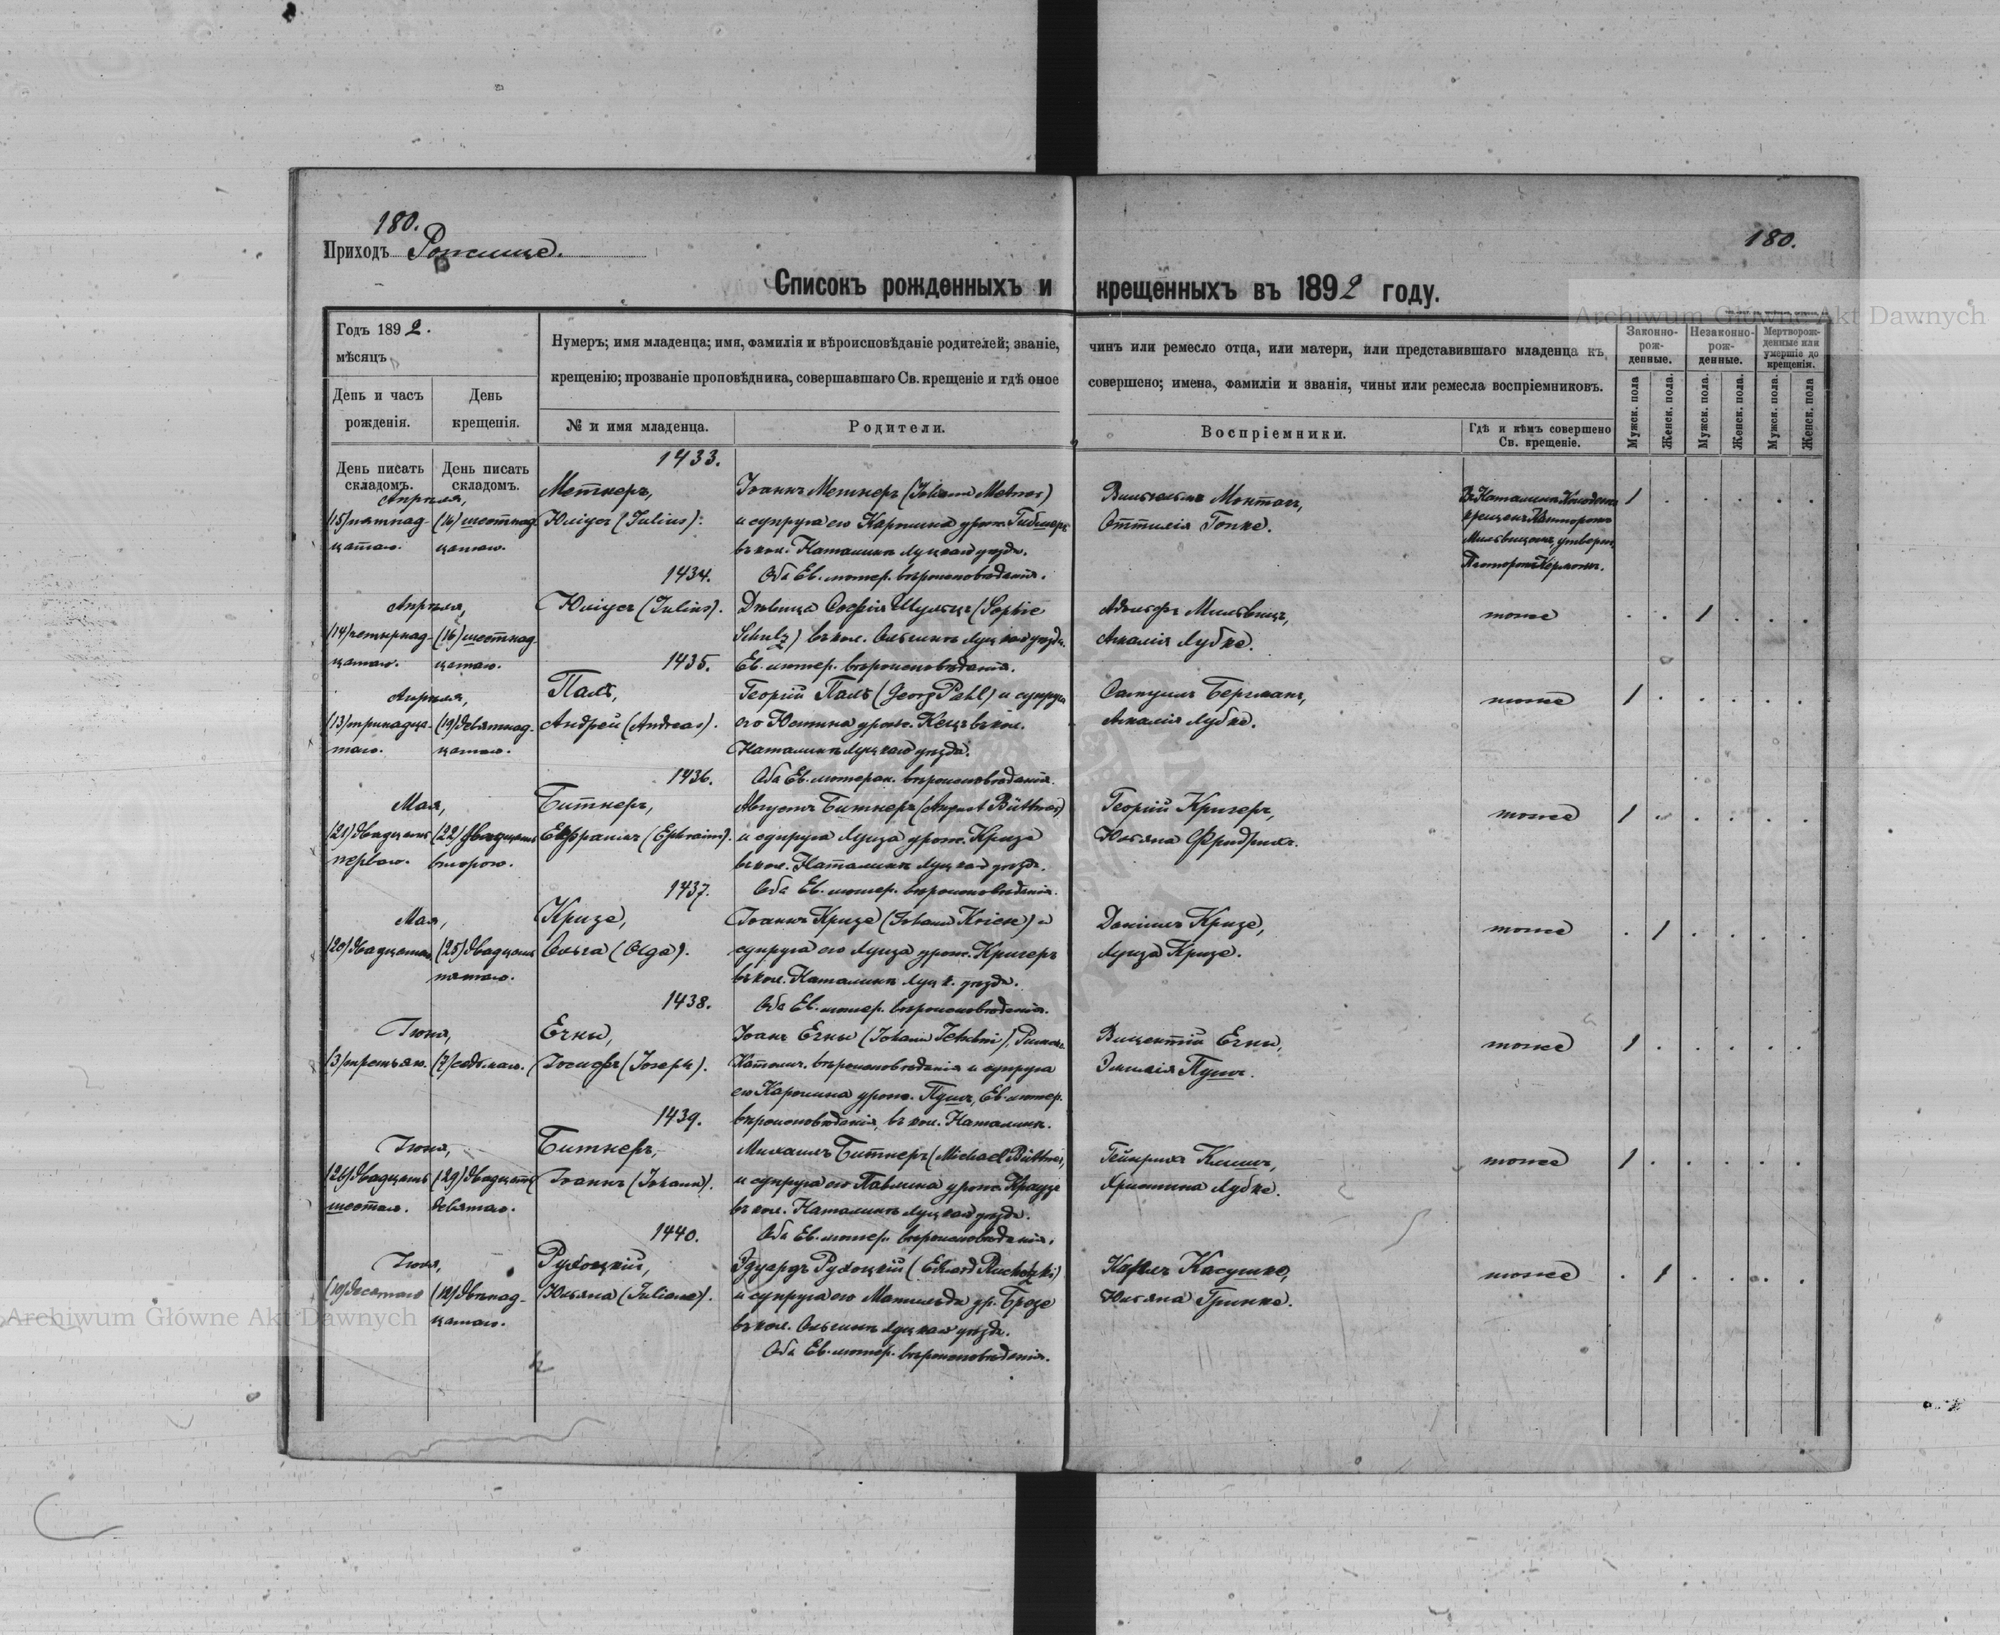 180.
Приходъ Рожище.
180.
Списокъ рожденныхъ и крещенныхъ въ 1892 году.
Archiwum Główne Akt Dawnych
Годъ 1892.
мѣсяцъ
День и часъ
рожденія.
День
крещенія.
Нумеръ; имя младенца; имя, фамилія и вѣроисповѣданіе родителей; званіе,
крещенію; прозваніе проповѣдника, совершавшаго Св. крещеніе и гдѣ оное
№ и имя младенца.
Родители.
чинъ или ремесло отца, или матери, или представившаго младенца къ
совершено; имена, фамиліи и званія, чины или ремесла воспріемниковъ.
Воспріемники.
Гдѣ и кѣмъ совершено
Св. крещеніе.
Законно-
рож-
денные.
Незаконно-
рож-
денные.
Мертворож-
денные или
умершіе до
крещенія.
Мужск. пола
Женск. пола.
Мужск. пола.
Женск. пола.
Мужск. пола.
Женск. пола
День писать
складомъ.
День писать
складомъ.
1433.
Апрѣля,
(15) пятнад-
цатаго.
(16) шестнад
цатаго.
Метнеръ,
Юліусъ (Julius).
Іоаннъ Метнеръ (Johann Metner)
и супруга его Каролина урож.
въ кол. Наталинъ Луцкаго уѣзда.
Оба Ев. лютер. вѣроисповѣданія.
Вильгельмъ Монтай,
Оттилія Гопке.
Въ Наталинъ
крещенъ Канторомъ
Мильбицомъ, утвержд.
Пасторомъ Керномъ.
1
1434.
Апрѣля,
(14) четырнад-
цатаго.
(16) шестнад-
цатаго.
Юліусъ (Julius).
Дѣвица Софія Шульцъ (Sophie
Schulz) въ кол. Ольгинъ Луцкаго уѣзда.
Ев. лютер. вѣроисповѣданія.
Адольфъ Мильбицъ,
Амалія Лубке.
тоже
1
1435.
Апрѣля,
(13) тринадца-
таго.
(19) девятнад-
цатаго.
Паль,
Андрей (Andreas).
Георгій Паль (Georg Pahl) и супруга
его Юстина урож. Кецъ въ кол.
Наталинъ Луцкаго уѣзда.
Оба Ев. лютеран. вѣроисповѣданія.
Самуилъ Бергманъ,
Амалія Лубке.
тоже
1
1436.
Мая,
(21) двадцать
перваго.
(22) двадцать
второго.
Битнеръ,
Ефраимъ (Ephraim).
Августъ Битнеръ (August Büttner)
и супруга Луиза урож. Кризе
въ кол. Наталинъ Луцкаго уѣзда.
Оба Ев. лютер. вѣроисповѣданія.
Георгій Кригеръ,
Юльяна Фридрихъ.
тоже
1
1437.
Мая,
(20) двадцатаго
(25) двадцать
пятаго.
Кризе,
Ольга (Olga).
Іоаннъ Кризе (Johann Kriese) и
супруга его Луиза урож. Кригеръ
въ кол. Наталинъ Луцк. уѣзда.
Оба Ев. лютер. вѣроисповѣданія.
Даніилъ Кризе,
Луиза Кризе.
тоже
1
1438.
Іюня,
(3) третьяго.
(7) седьмаго.
Ечны,
Іосифъ (Joseph).
Іоанъ Ечны (Johann
Католич. вѣроисповѣданія и супруга
его Каролина урож. Пушъ, Ев. лютер.
вѣроисповѣданія, въ кол. Наталинъ.
Вицентій Ечны,
Эмилія Пушъ.
тоже
1
1439.
Іюня,
(26) двадцать
шестаго.
(29) двадцать
девятаго.
Битнеръ,
Іоаннъ (Johann).
Михаилъ Битнеръ (Michael Büttner)
и супруга его Павлина урож. Краузе
въ кол. Наталинъ Луцкаго уѣзда.
Оба Ев. лютер. вѣроисповѣданія.
Гейнрихъ
Христина Лубке.
тоже
1
1440.
Іюня,
(10) десятаго
(12) двѣнад-
цатаго.
Рухоцкій,
Юльяна (Juliane).
Эдуардъ Рухоцкій (Eduard Ruchotzki)
и супруга его Матильда ур. Брозе
въ кол. Ольгинъ Луцкаго уѣзда.
Оба Ев. лютер. вѣроисповѣданія.
Карлъ
Юльяна Гринке.
тоже
1
Archiwum Główne Akt Dawnych